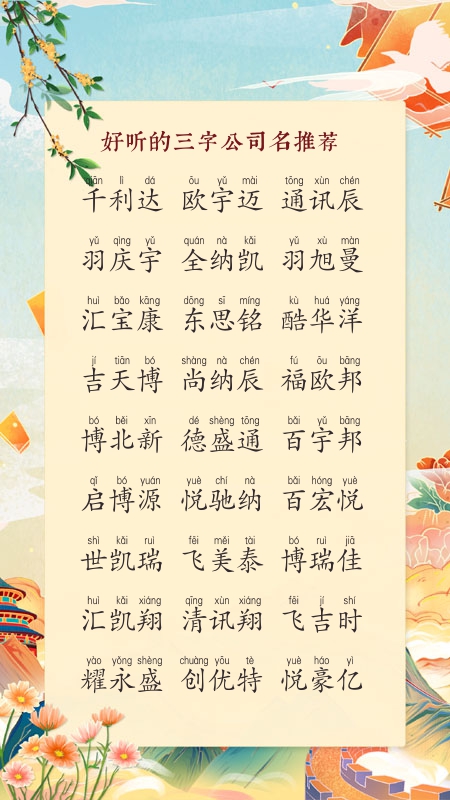 好听的三字公司名推荐
qiān lì dá ōu yǔ mài tōng xùn chén
千利达 欧宇迈 通讯辰
yǔ qìng yǔ quán nà kǎi yǔ xù màn
羽庆宇 全纳凯 羽旭曼
huì bǎo kāng dōng sī míng kù huá yáng
汇宝康 东思铭 酷华洋
jí tiān bó shàng nà chén fú ōu bāng
吉天博 尚纳辰 福欧邦
bó běi xīn dé shèng tōng bǎi yǔ bāng
博北新 德盛通 百宇邦
qǐ bó yuán yuè chí nà bǎi hóng yuè
启博源 悦驰纳 百宏悦
shì kǎi ruì fēi měi tài bó ruì jiā
世凯瑞 飞美泰 博瑞佳
huì kǎi xiáng qīng xùn xiáng fēi jí shí
汇凯翔 清讯翔 飞吉时
yào yǒng shèng chuàng yōu tè yuè háo yì
耀永盛 创优特 悦豪亿